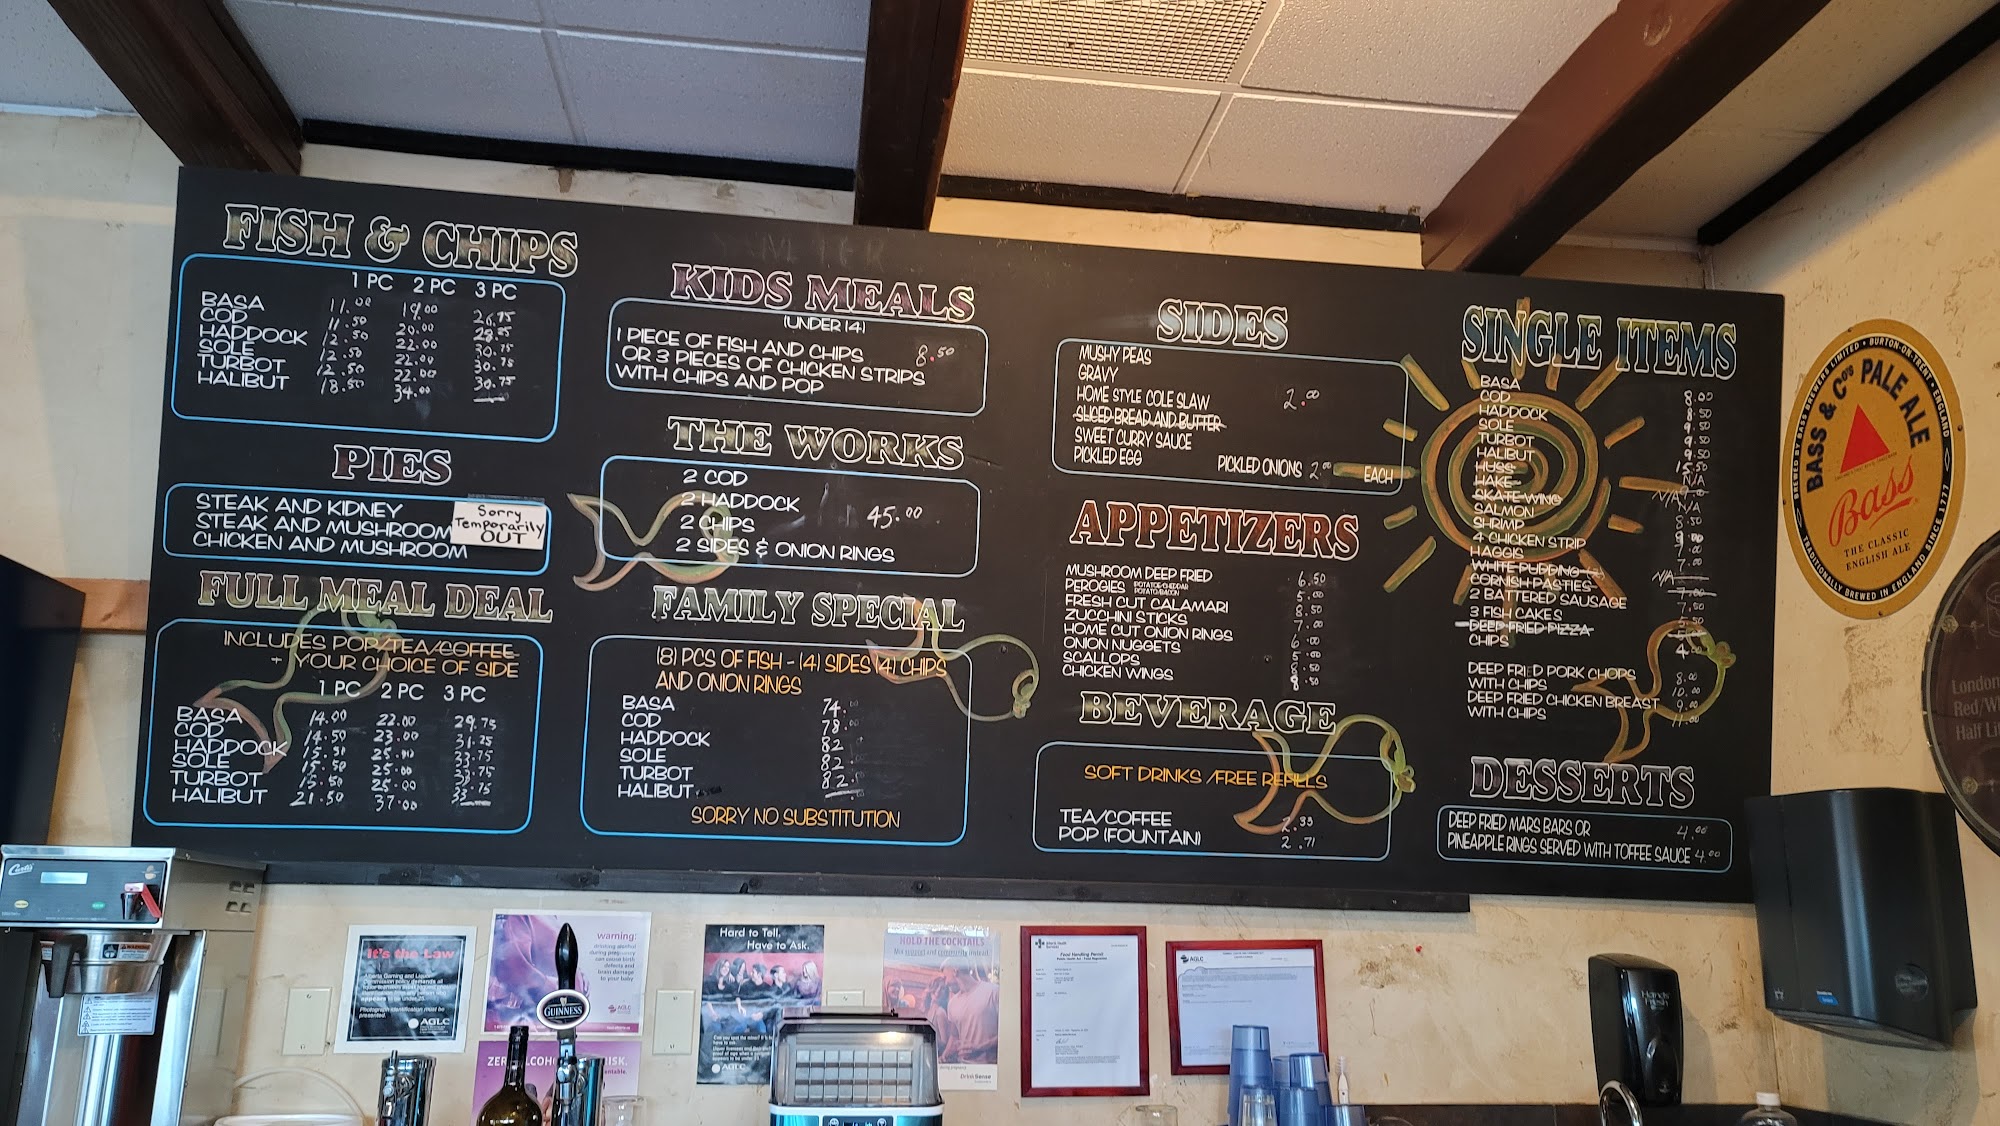 FISH & CHIPS
1 PC 2 PC 3 PC
BASA 11.00 19.00 26.75
COD 11.50 20.00 28.25
HADDOCK 12.50 22.00 30.75
SOLE 12.50 22.00 30.75
TURBOT 12.50 22.00 30.75
HALIBUT 18.50 34.00
PIES
STEAK AND KIDNEY
STEAK AND MUSHROOM
CHICKEN AND MUSHROOM
Sorry
Temporarily
OUT
FULL MEAL DEAL
INCLUDES POP/TEA/COFFEE
+ YOUR CHOICE OF SIDE
1 PC 2 PC 3 PC
BASA 14.00 22.00 29.75
COD 14.50 23.00 31.25
HADDOCK 15.50 25.00 33.75
SOLE 15.50 25.00 33.75
TURBOT 15.50 25.00 33.75
HALIBUT 21.50 37.00
KIDS MEALS
(UNDER 14)
1 PIECE OF FISH AND CHIPS 8.50
OR 3 PIECES OF CHICKEN STRIPS
WITH CHIPS AND POP
THE WORKS
2 COD
2 HADDOCK 45.00
2 CHIPS
2 SIDES & ONION RINGS
FAMILY SPECIAL
(8) PCS OF FISH - (4) SIDES (4) CHIPS
AND ONION RINGS
BASA 74.
COD 78.
HADDOCK 82
SOLE 82.
TURBOT 82.
HALIBUT
SORRY NO SUBSTITUTION
SIDES
MUSHY PEAS
GRAVY
HOME STYLE COLE SLAW 2.00
SLICED BREAD AND BUTTER
SWEET CURRY SAUCE
PICKLED EGG PICKLED ONIONS 2.00 EACH
APPETIZERS
MUSHROOM DEEP FRIED 6.50
PEROGIES POTATOE/CHEDDAR POTATO/BACON 5.00
FRESH CUT CALAMARI 8.50
ZUCCHINI STICKS 7.00
HOME CUT ONION RINGS 6.00
ONION NUGGETS 5.00
SCALLOPS 8.50
CHICKEN WINGS 8.50
BEVERAGE
SOFT DRINKS /FREE REFILLS
TEA/COFFEE 2.33
POP (FOUNTAIN) 2.71
SINGLE ITEMS
BASA 8.00
COD 8.50
HADDOCK 9.50
SOLE 9.50
TURBOT 9.50
HALIBUT 15.50
HUSS N/A
HAKE N/A
SKATE WING N/A
SALMON 8.50
SHRIMP 9.00
4 CHICKEN STRIP 7.00
HAGGIS 7.00
WHITE PUDDING N/A
CORNISH PASTIES 7.00
2 BATTERED SAUSAGE 7.50
3 FISH CAKES 5.50
DEEP FRIED PIZZA
CHIPS 4.00
DEEP FRIED PORK CHOPS 8.00
WITH CHIPS 10.00
DEEP FRIED CHICKEN BREAST 9.00
WITH CHIPS 11.00
DESSERTS
DEEP FRIED MARS BARS OR 4.00
PINEAPPLE RINGS SERVED WITH TOFFEE SAUCE 4.00
BREWED BY BASS BREWERS LIMITED • BURTON-ON-TRENT • ENGLAND
BASS & Co's PALE ALE
Bass
THE CLASSIC
ENGLISH ALE
TRADITIONALLY BREWED IN ENGLAND SINCE 1777
London
Red/Wh
Half Li
Curtis
It's the Law
Alberta Gaming and Liquor
Commission policy demands all
Photograph identification must be
presented.
AGLC
warning:
drinking alcohol
during pregnancy
can cause birth
defects and
brain damage
to your baby
AGLC
ZER ALCOHO RISK.
GUINNESS
Hard to Tell,
Have to Ask.
AGLC
HOLD THE COCKTAILS
Mix support and community instead.
DrinkSense
Food Handling Permit
AGLC
Hands
Fresh